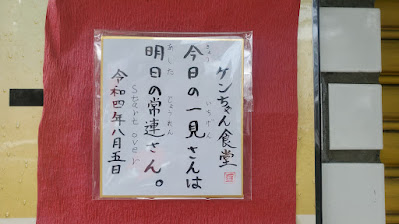 ケンちゃん食堂
今日の一見さんは
きょう
いちげん
明日の常連さん。
あした
じょうれん
Start over
令和四年八月五日